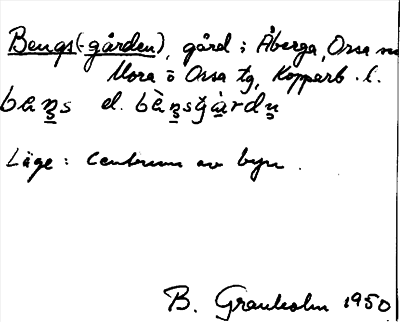 Bengs(-gården), gård i Åberga, Orsa sn
Mora o Orsa tg, Kopparb. l.
bæŋs el. bæ̀ŋsgàrdn̥
Läge: Centrum av byn.
B. Granholm 1950